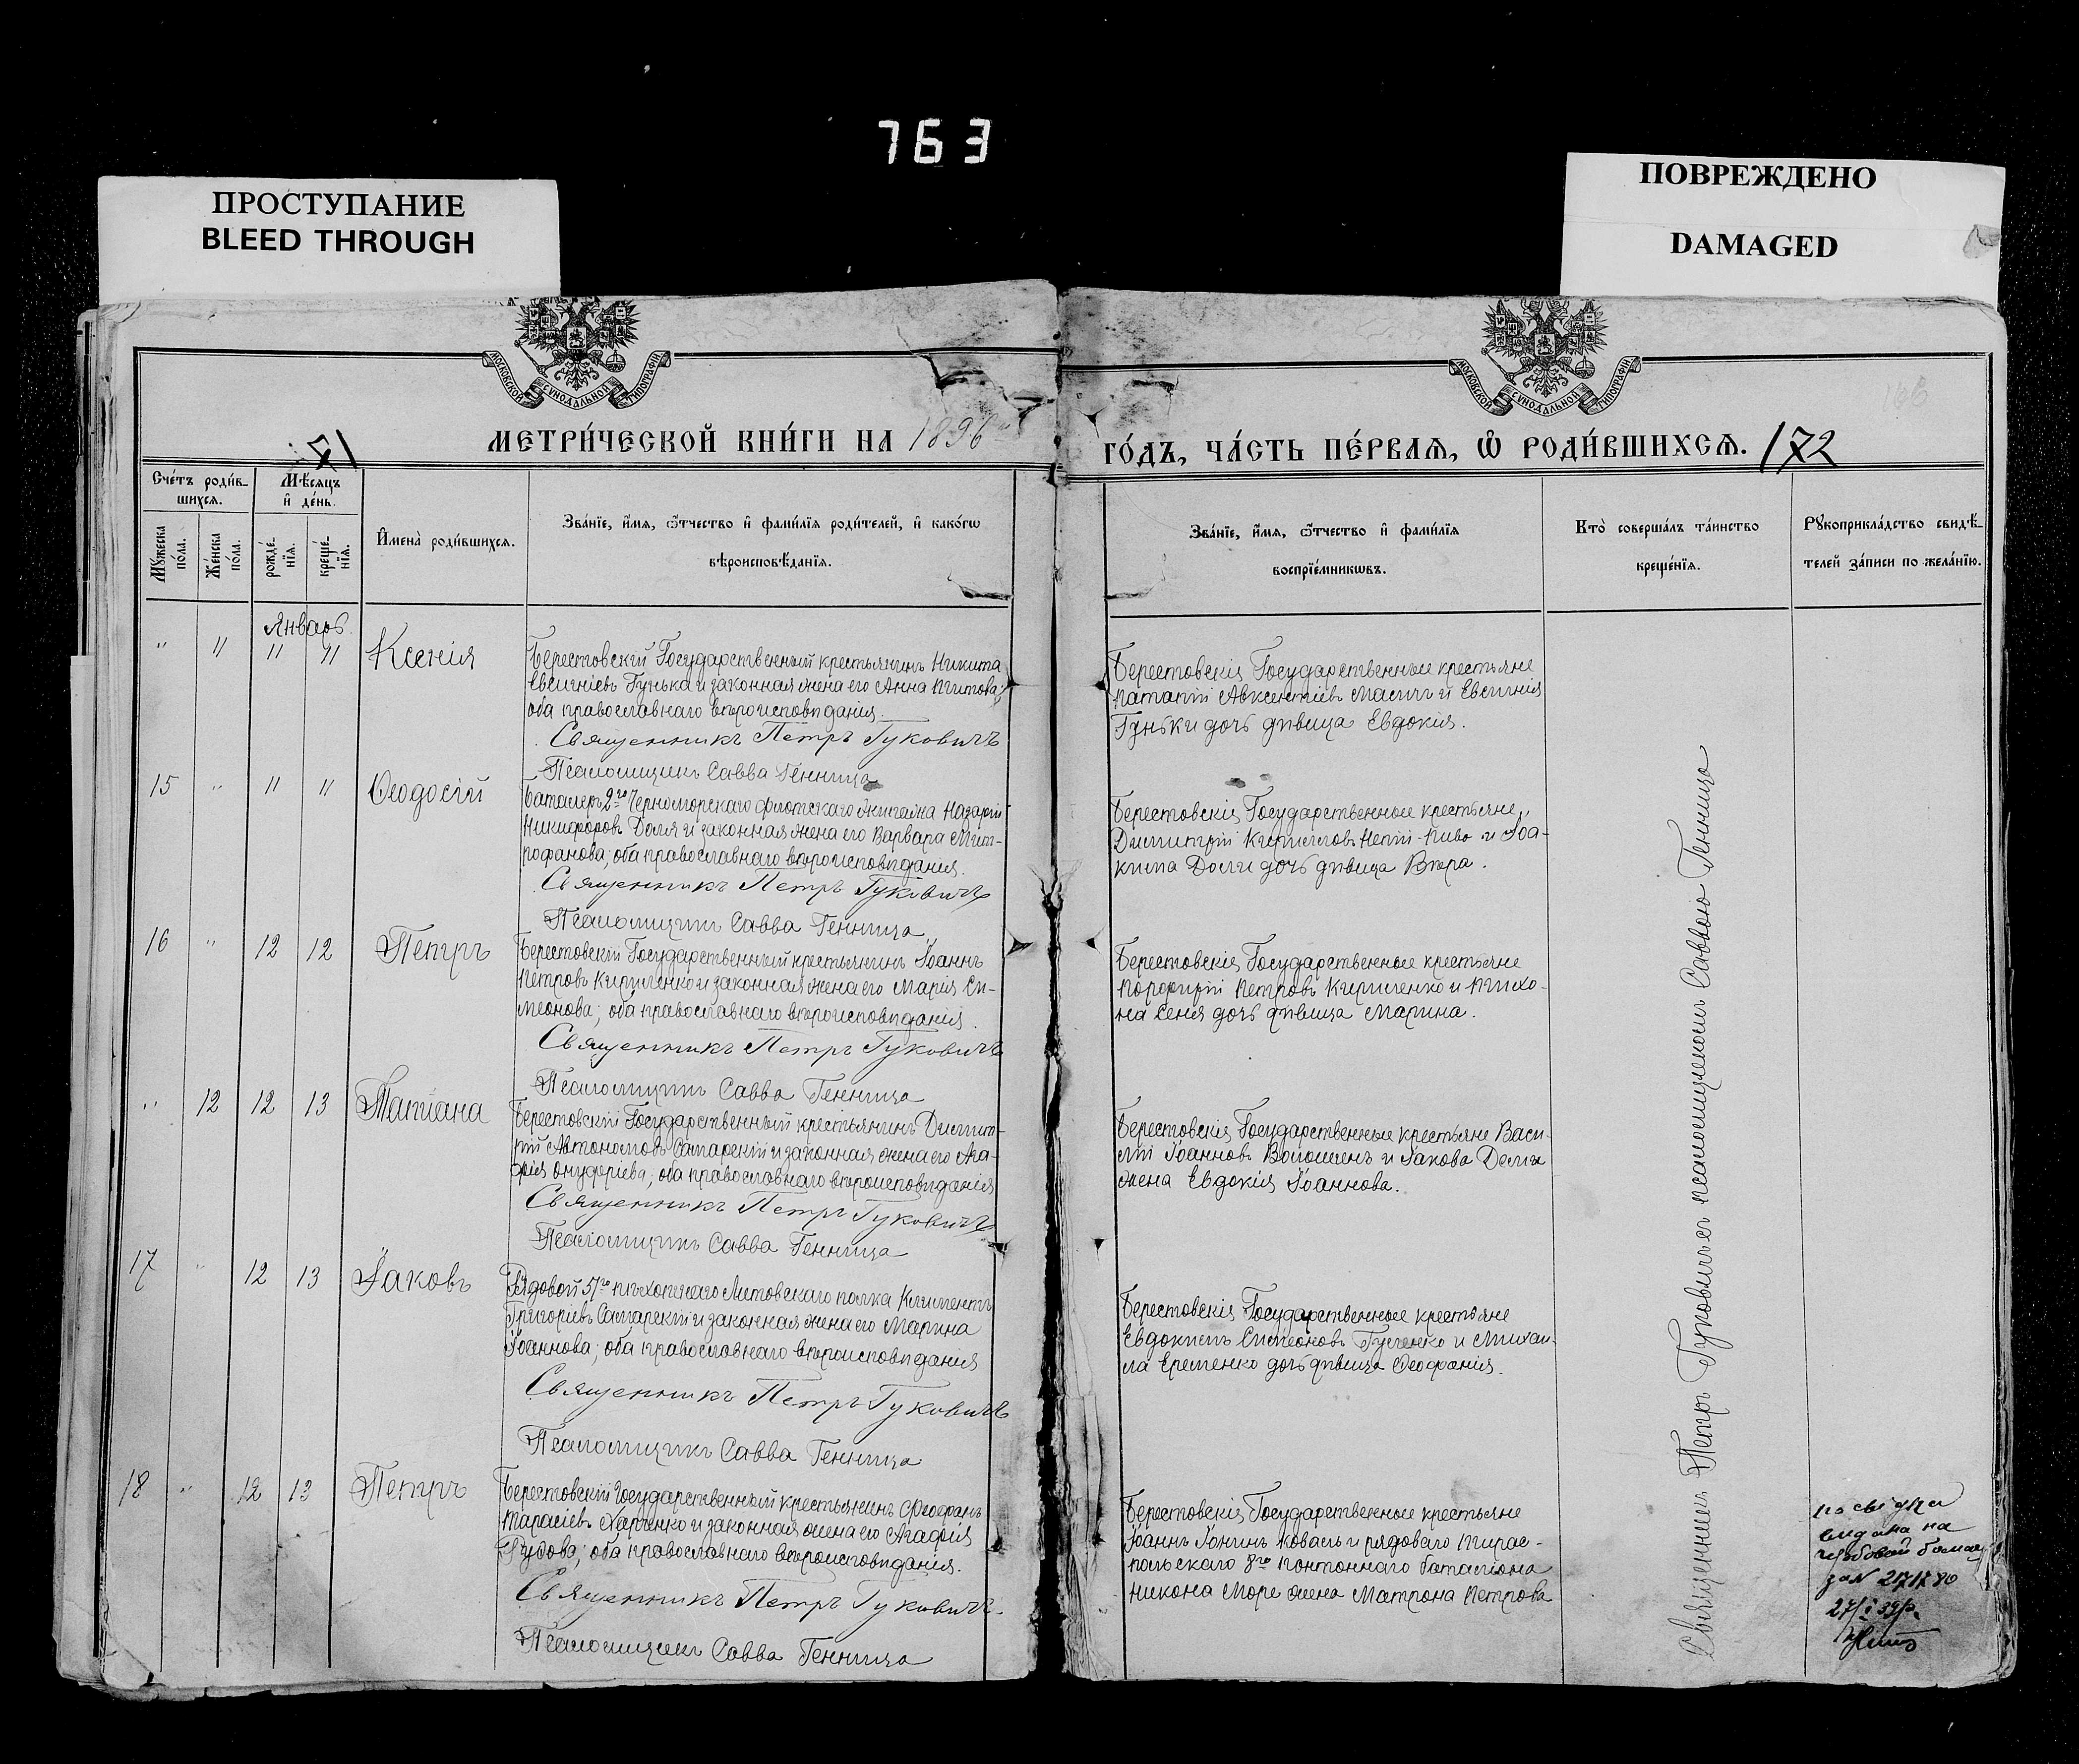 763
ПРОСТУПАНИЕ
BLEED THROUGH
ПОВРЕЖДЕНО
DAMAGED
МОСКОВСКОЙ СѴНОДАЛЬНОЙ ТИПОГРАФІИ
МОСКОВСКОЙ СѴНОДАЛЬНОЙ ТИПОГРАФІИ
166
МЕТРИ́ЧЕСКОЙ КНИ́ГИ НА 1896
ГО́ДЪ, ЧА́СТЬ ПЕ́РВАЯ, Ѡ РОДИ́ВШИХСЯ. 172
Сче́тъ роди́в-
шихся.
Мѣ́сяцъ
и҆ де́нь.
Мꙋ́жеска
по́ла.
Же́нска
по́ла.
рожде́-
нїя.
креще́-
нїя.
И҆мена̀ роди́вшихся.
Зва́нїе, и҆́мя, ѻ҆́тчество и҆ фами́лїя роди́телей, и҆ како́гѡ
вѣроисповѣ́данїя.
Зва́нїе, и҆́мя, ѻ҆́тчество и҆ фами́лїя
воспрїе́мникѡвъ.
Кто̀ соверша́лъ та́инство
креще́нїя.
Рꙋкоприкла́дство свидѣ́-
телей за́писи по жела́нїю.
Январь
" 11 11 11 Ксенія
Берестовскій Государственный крестьянинъ Никита
Евсигніевъ Гунька и законная жена его Анна Титова;
оба православнаго вѣроисповѣданія.
Священникъ Петръ Гуковичъ
Псаломщикъ Савва Генница
Берестовскія Государственные крестьяне
Патапій Авксентіевъ Масичъ и Евсигнія
Гуньки дочь дѣвица Евдокія.
15 " 11 11 Ѳеодосій
Баталеръ 2го Черноморскаго флотскаго экипажа Назарій
Никифоровъ Доля и законная жена его Варвара Мит-
рофанова; оба православнаго вѣроисповѣданія.
Священникъ Петръ Гуковичъ
Псаломщикъ Савва Генница
Берестовскія Государственные крестьяне,
Димитрій Кирилловъ Непій-Пиво и Іоа-
кима Доли дочь дѣвица Вѣра.
16 " 12 12 Петръ
Берестовскій Государственный крестьянинъ Іоаннъ
Петровъ Кириченко и законная жена его Марія Си-
меонова; оба православнаго вѣроисповѣданія.
Священникъ Петръ Гуковичъ
Псаломщикъ Савва Генница
Берестовскія Государственные крестьяне
Порфирій Петровъ Кириченко и Тихо-
на Сеня дочь дѣвица Марина.
" 12 12 13 Татіана
Берестовскій Государственный крестьянинъ Димит-
рій Автономовъ Самарскій и законная жена его Ага-
фія Онуфріева; оба православнаго вѣроисповѣданія
Священникъ Петръ Гуковичъ
Псаломщикъ Савва Генница
Берестовскія Государственные крестьяне Васи-
лій Іоанновъ Волошенъ и Іакова Доли
жена Евдокія Іоаннова.
17 " 12 13 Іаковъ
Рядовой 51го пѣхотнаго Литовскаго полка Климентъ
Григорьевъ Самарскій и законная жена его Марина
Іоаннова; оба православнаго вѣроисповѣданія
Священникъ Петръ Гуковичъ
Псаломщикъ Савва Генница
Берестовскія Государственные крестьяне
Евдокимъ Симеоновъ и Михаи-
ла Еременко дочь дѣвица Ѳеофанія.
18 " 12 13 Петръ
Берестовскій Государственный крестьянинъ Феофанъ
Тарасіевъ Харченко и законная жена его Агафія
оба православнаго вѣроисповѣданія.
Священникъ Петръ Гуковичъ.
Псаломщикъ Савва Генница
Берестовскія Государственные крестьяне
Іоаннъ Коваль и рядоваго Тирас-
польскаго 8го понтоннаго баталіона
Никона Море жена Матрона Петрова
Священникъ Петръ Гуковичъ съ псаломщикомъ Саввою Генница
на